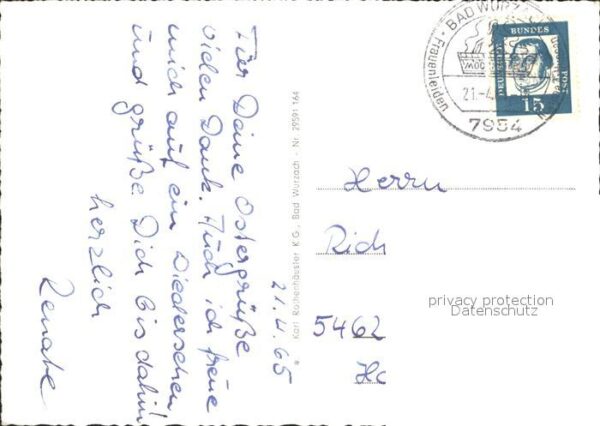 Für Deine Ostergrüße
vielen Dank. Auch ich freue
mich auf ein Wiedersehen
und grüße Dich bis dahin
herzlich
Renate
21.4.65
Karl Rothenhäusler K G, Bad Wurzach - Nr. 29591 164
BAD WURZ
Frauenleiden
MOO
21.-4.
7954
DEUTSCHE
BUNDES
POST
15
Herrn
Rich
5462
He
privacy protection
Datenschutz